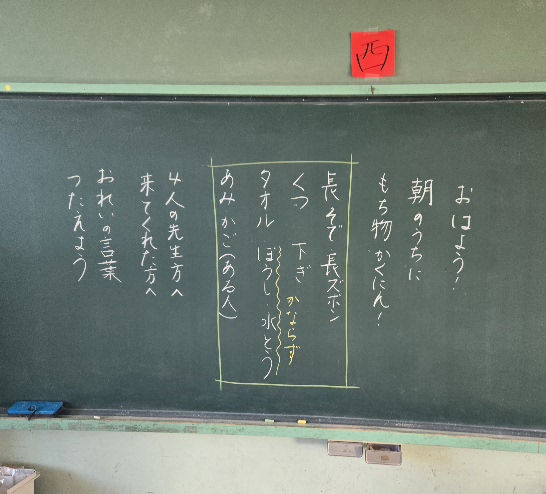 西
おはよう！
朝のうちに
もち物かくにん！
長そで 長ズボン
くつ 下ぎ かならず
タオル ぼうし・水とう
あみかご(ある人)
4人の先生方へ
来てくれた方へ
おれいの言葉
つたえよう